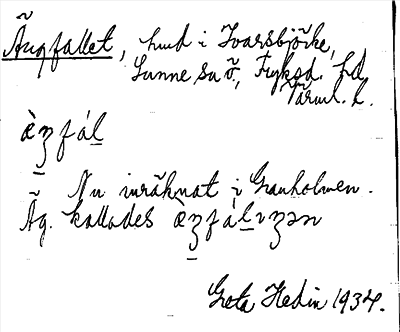 Ängfallet, hmd i Ivarsbjörke,
Sunne sn ö, Fryksd. hd
Värml. l.
æ̀ŋfál
Nu inräknat i Granholmen.
Äg. kallades æ̀ŋfálıŋən
Greta Hedin 1934.